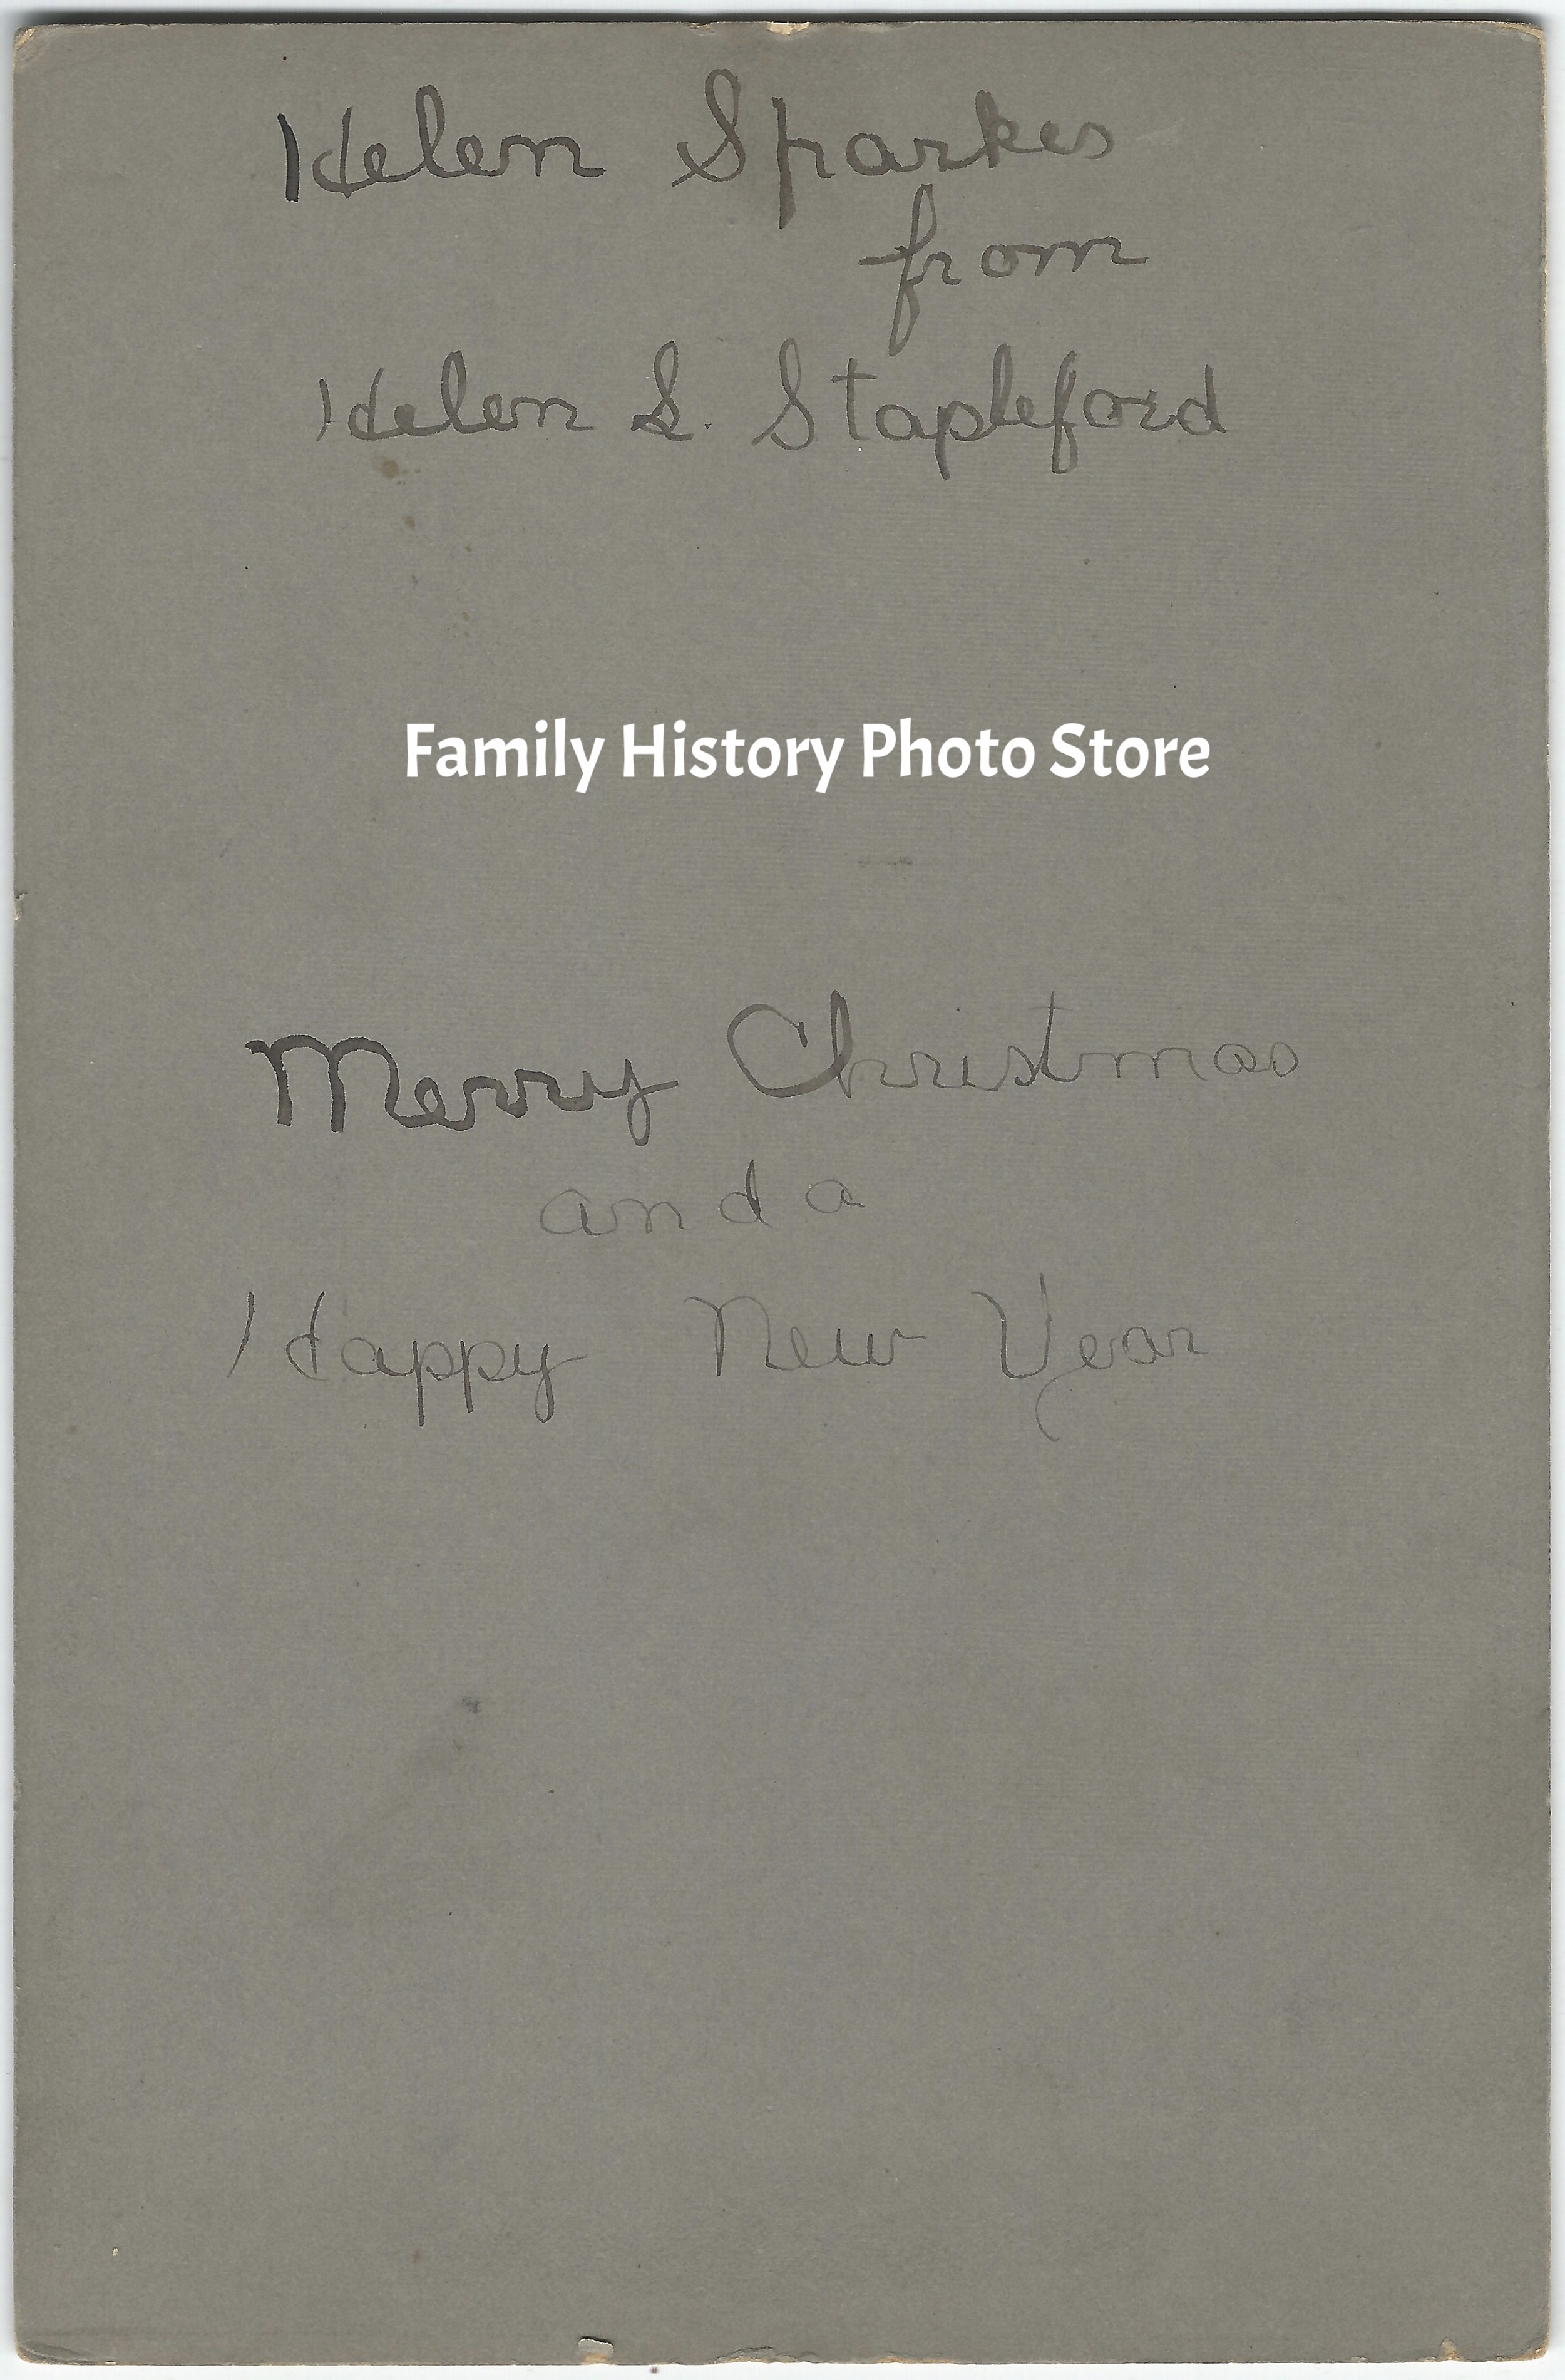 Helen Sparkes
from
Helen S. Stapleford
Family History Photo Store
Merry Christmas
and a
Happy New Year